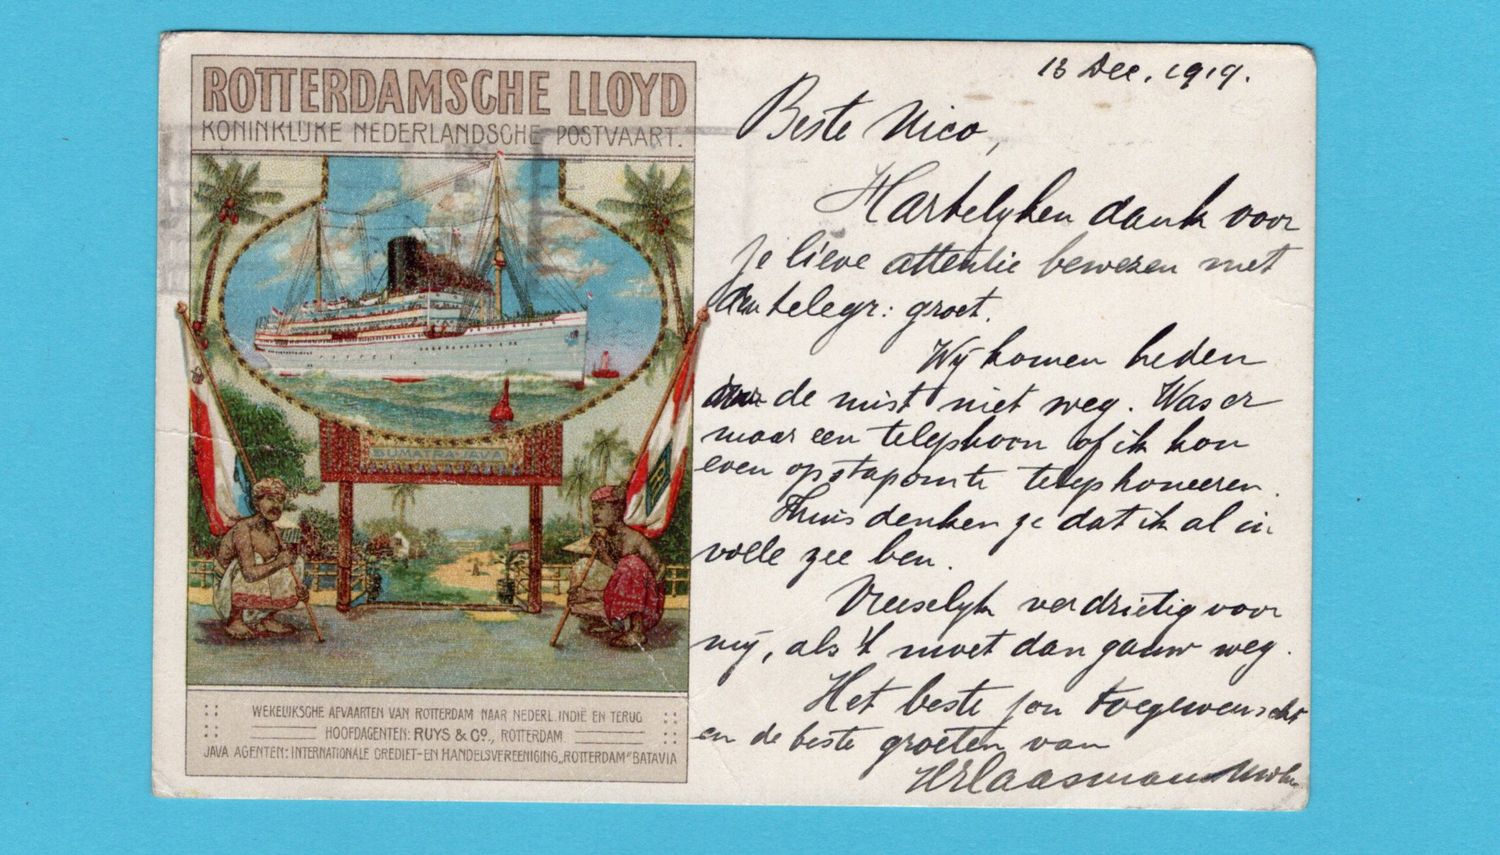 ROTTERDAMSCHE LLOYD
KONINKLIJKE NEDERLANDSCHE POSTVAART.
SUMATRA-JAVA
WEKELIJKSCHE AFVAARTEN VAN ROTTERDAM NAAR NEDERL. INDIË EN TERUG
HOOFDAGENTEN: RUYS & Co., ROTTERDAM
JAVA AGENTEN: INTERNATIONALE CREDIET- EN HANDELSVEREENIGING „ROTTERDAM" BATAVIA
13 Dec. 1919.
Beste Nico,
Hartelyken dank voor
je lieve attentie bewezen met
telegr: groet.
Wij komen heden
de mist niet weg. Was er
maar een telephoon of ik kon
even opstapom te telephoneeren.
Thuis denken ze dat ik al in
volle zee ben.
Vreeselyk verdrietig voor
mij, als 't moet dan gauw weg.
Het beste jou toegewenscht
en de beste groeten van